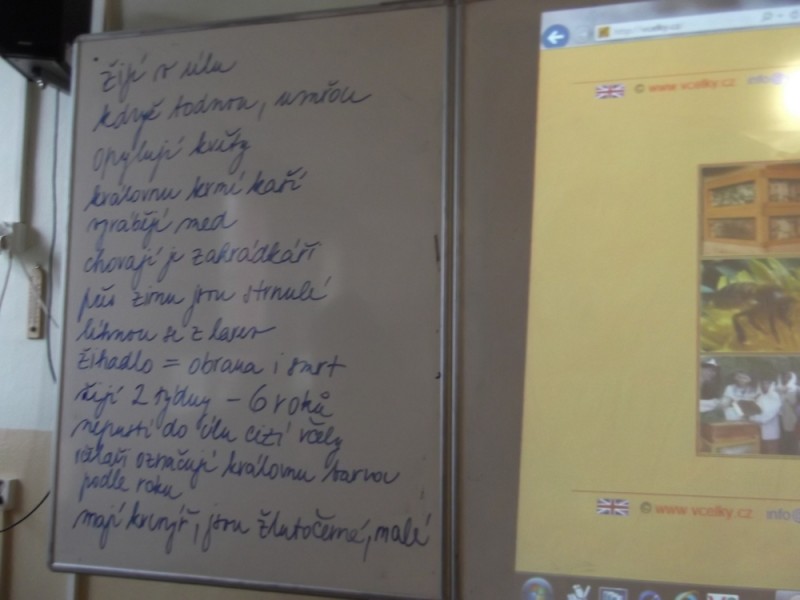 žijí v úlu
když bodnou, umřou
opylují květy
královnu krmí kaší
vyrábějí med
chovají je zahrádkáři
přes zimu jsou strnulé
líhnou se z larev
žihadlo = obrana i smrt
žijí 2 týdny - 6 roků
nepustí do úlu cizí včely
včelaři označují královnu barvou
podle roku
mají krunýř, jsou žlutočerné, malé
© www.vcelky.cz info@
© www.vcelky.cz info@